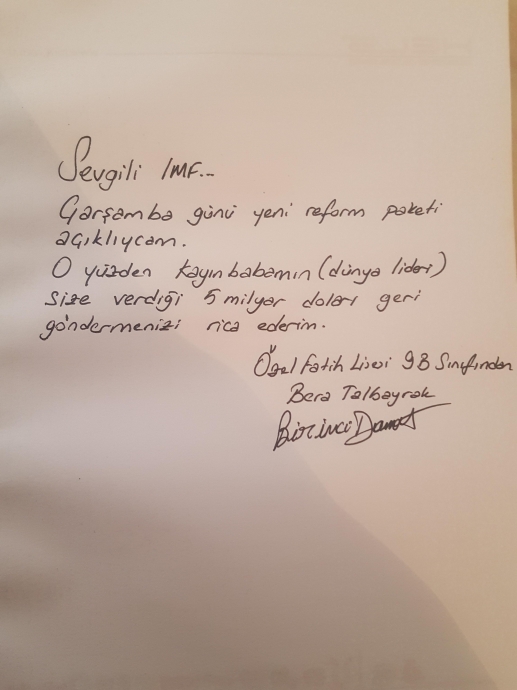 Sevgili IMF...
Çarşamba günü yeni reform paketi
açıklıycam.
O yüzden kayınbabamın (dünya lideri)
size verdiği 5 milyar doları geri
göndermenizi rica ederim.
Özel Fatih Lisesi 9B Sınıfından
Bera Talbayrak
Birinci Damat